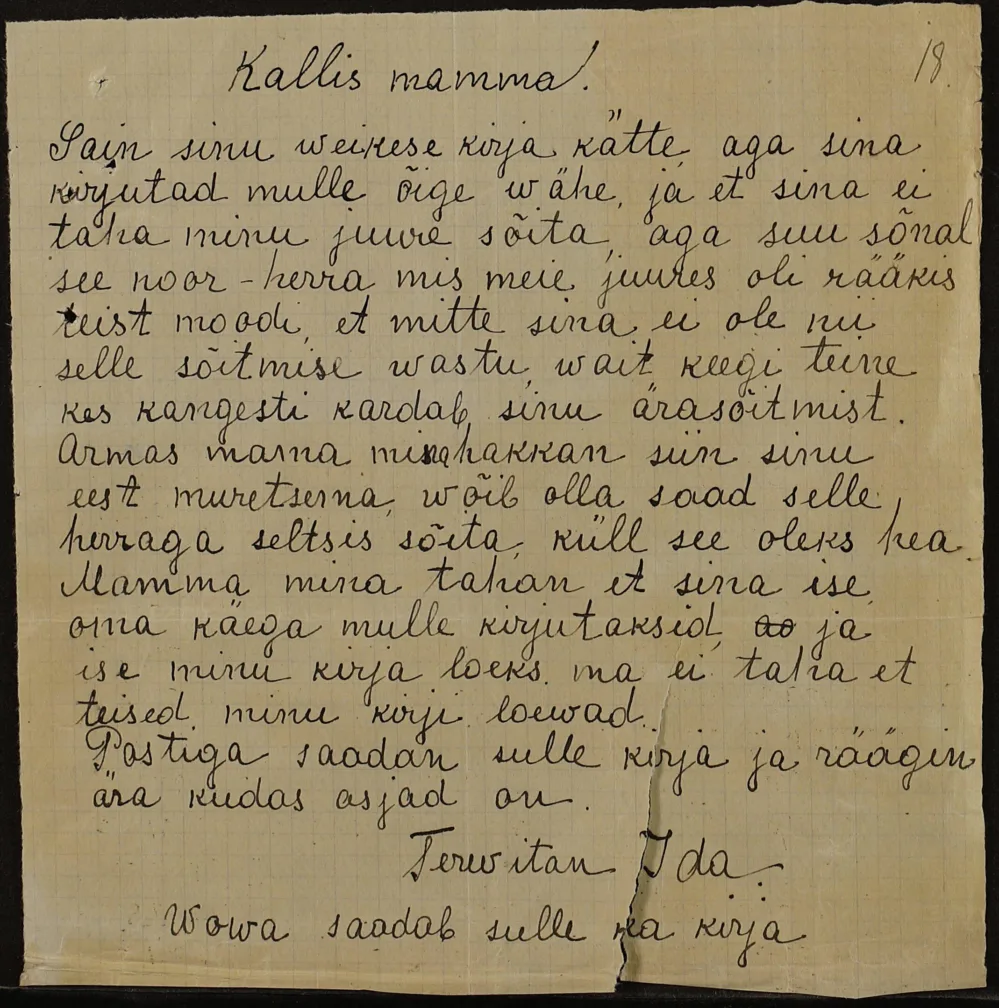 18.
Kallis mamma!
Sain sinu weikese kirja kätte, aga sina
kirjutad mulle õige wähe, ja et sina ei
taha minu juure sõita, aga suu sõnal
see noor-herra mis meie juures oli rääkis
teist moodi, et mitte sina ei ole nii
selle sõitmise wastu, wait keegi teine
kes kangesti kardab sinu ärasõitmist.
Armas mama mina hakkan siin sinu
eest muretsema, wõib olla saad selle
herraga seltsis sõita, küll see oleks hea.
Mamma mina tahan et sina ise
oma käega mulle kirjutaksid, ja
ise minu kirja loeks. ma ei taha et
teised minu kirji loewad.
Postiga saadan sulle kirja ja räägin
ära kudas asjad on.
Terwitan Ida.
Wowa saadab sulle ka kirja